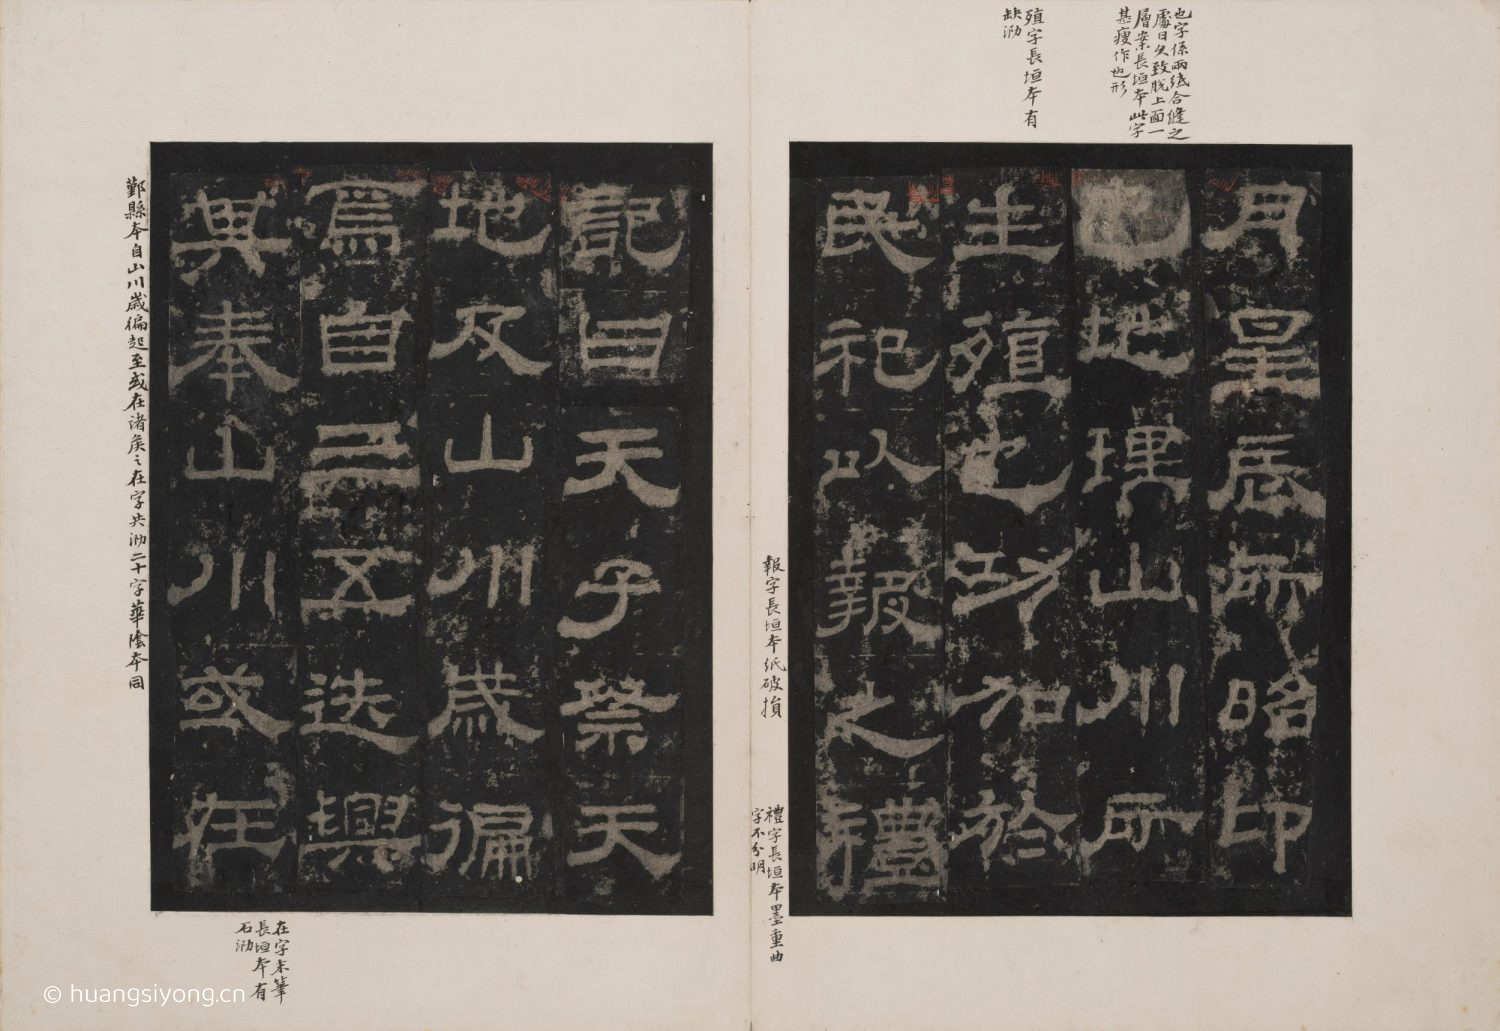 也字係兩紙合縫之
處日久致脫上面一
層案長垣本此字
甚瘦作也形
殖字長垣本有
缺泐
月星辰所昭卬
也地理山川所
生殖也功加於
民祀以報之禮
報字長垣本紙破損
禮字長垣本墨重曲
字不分明
記曰天子祭天
地及山川歲徧
焉自三五迭興
其奉山川或在
鄞縣本自山川歲徧起至或在諸矦之在字共泐二十字華陰本同
在字末筆
長垣本有
石泐
© huangsiyong.cn